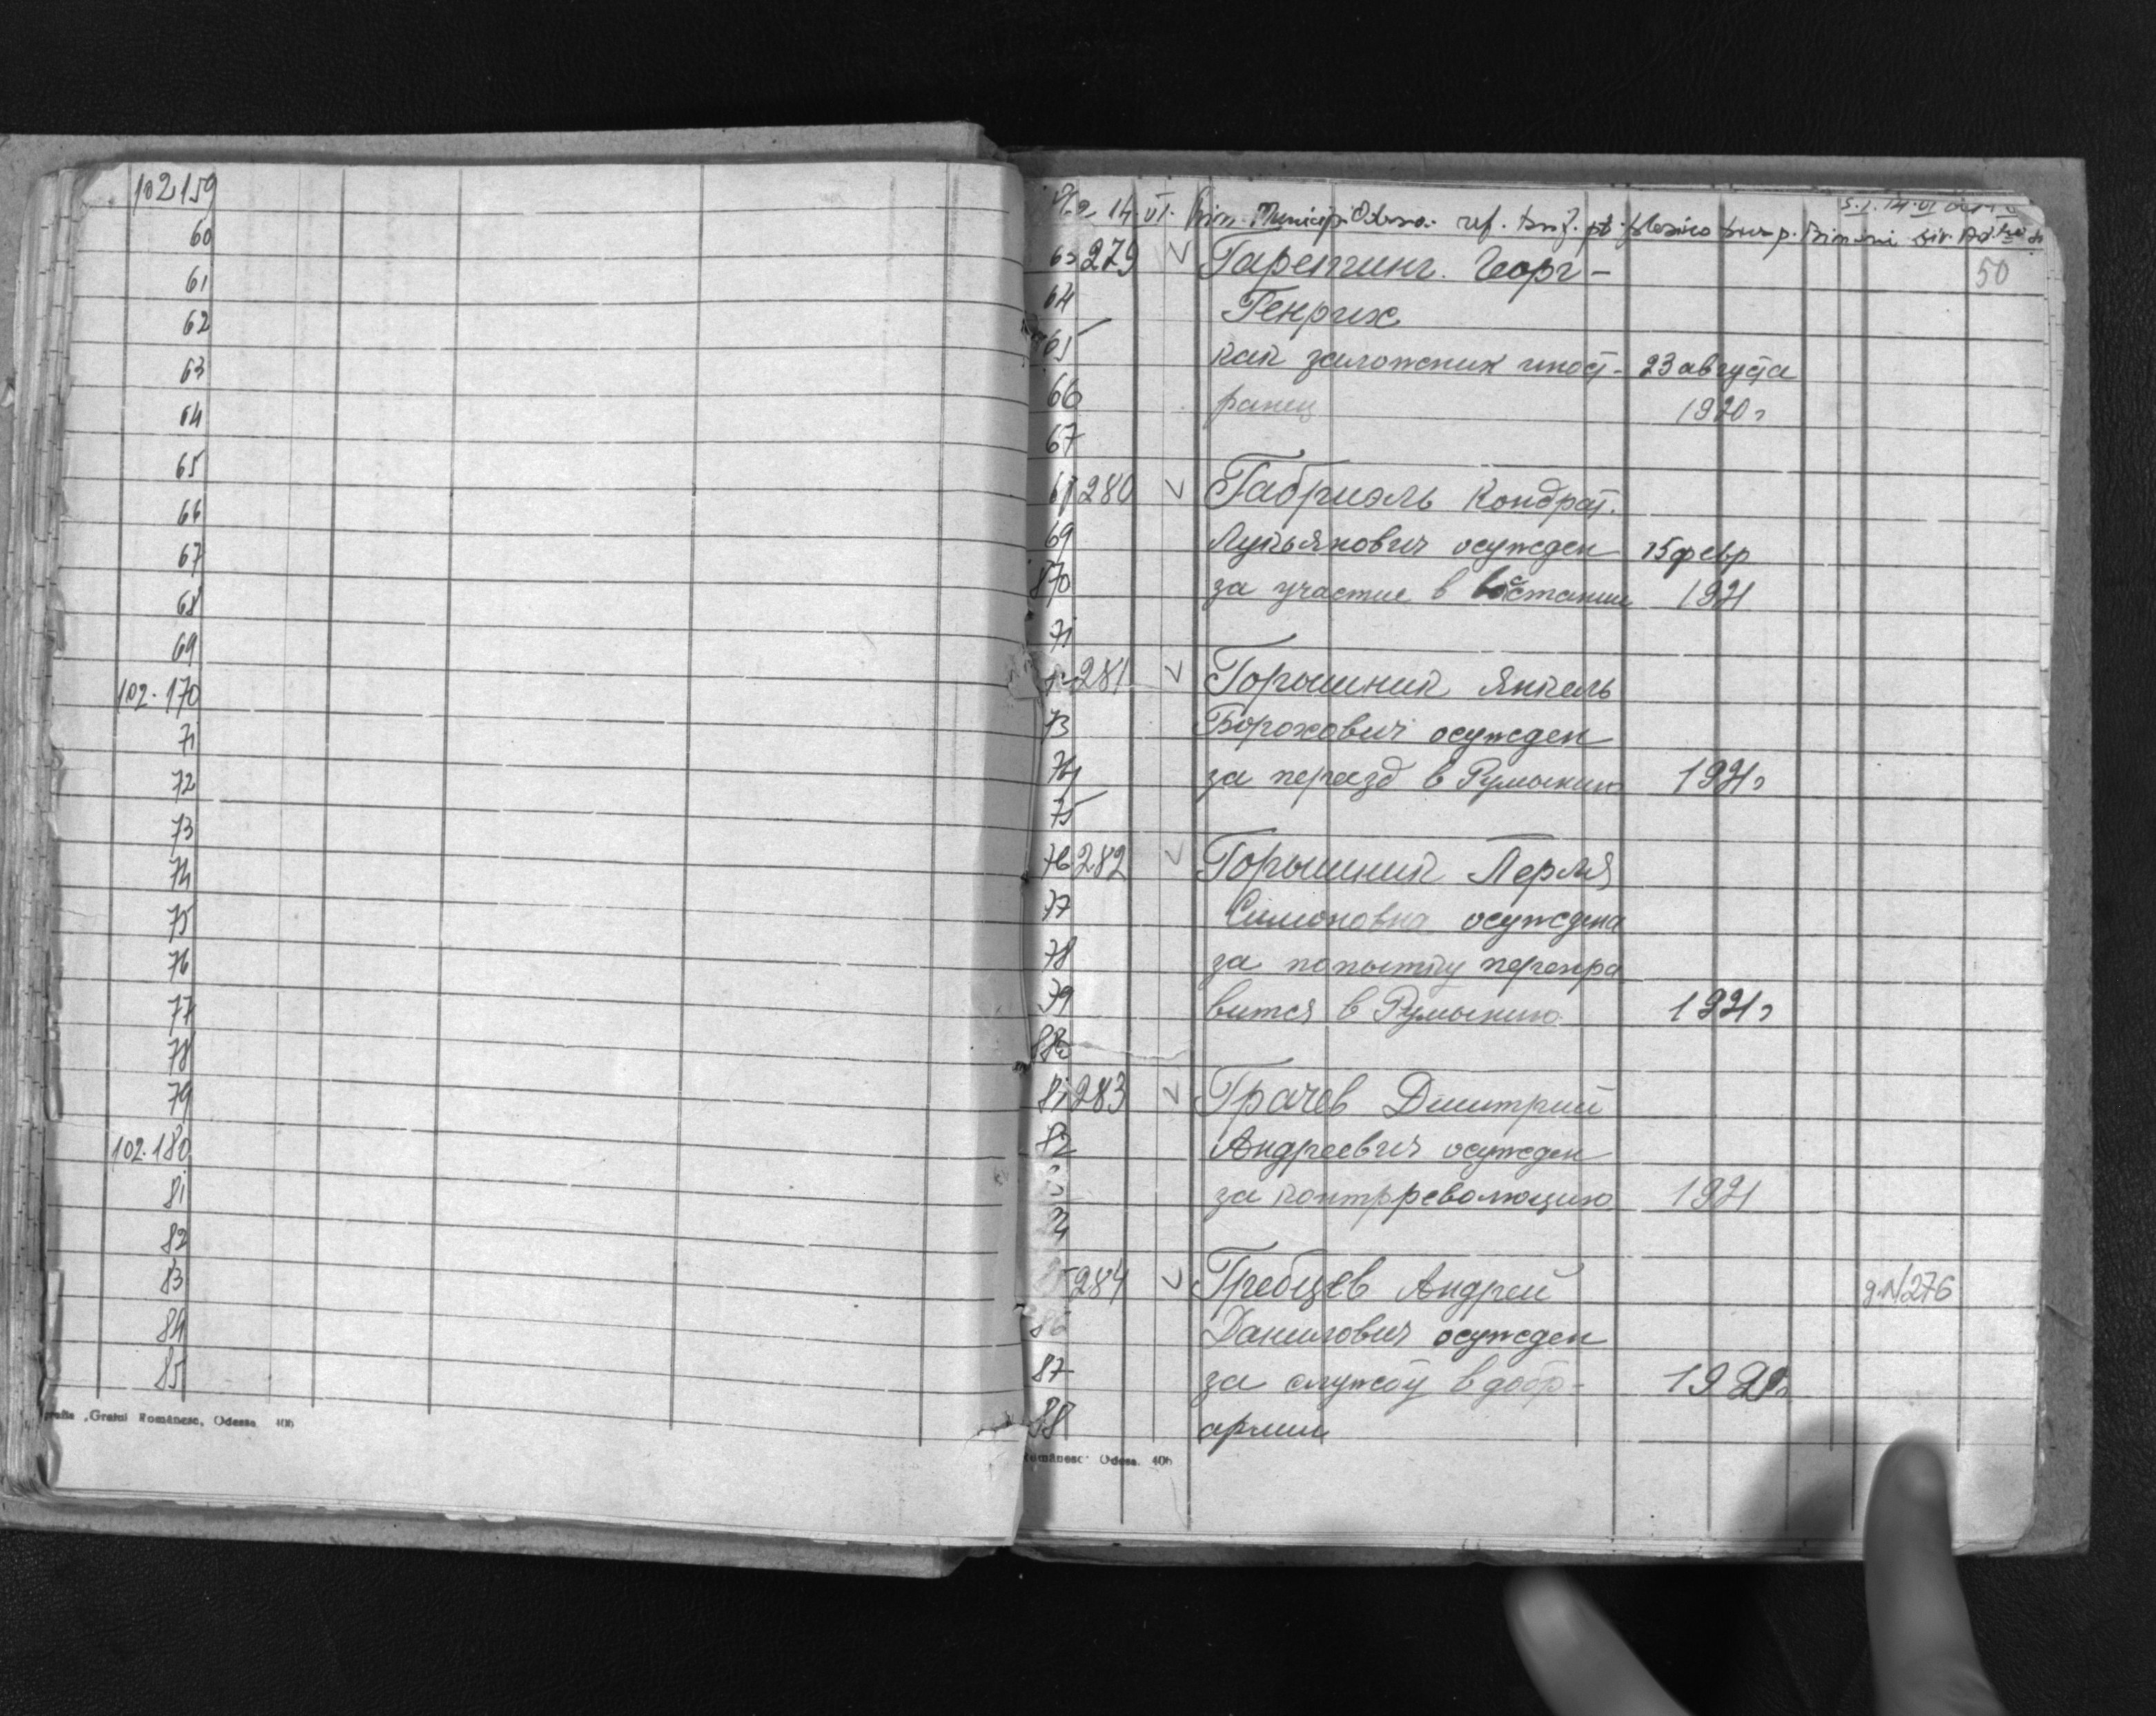 102159
60
61
62
63
64
65
66
67
68
69
102.170
71
72
73
74
75
76
77
78
79
102.180
81
82
83
84
85
„Graiul Românesc, Odessa 406
14.VI. Prim. Municip. Odessa. ref.
50
63 279 v Гаретинг. Георг-
64 Генрих
65 как заложник иност- 23 августа
66 ранец 1920 г
67
68 280 v Габриэль Кондрат.
69 Лукьянович осужден 15 февр
870 за участие в востании 1921
71
281 v Горышник Янкель
73 Борохович осужден
74 за переезд в Румынию 1921 г
75
76 282 v Горышник Перля
77 Симоновна осуждена
78 за попытку перепра
79 вится в Румынию 1921 г
880
81 283 v Грачев Дмитрий
82 Андреевич осужден
за контрреволюцию 1921
284 v Гребцев Андрей д.N276
86 Данилович осужден
87 за службу в добр-
88 армии
Românesc" Odesa. 406